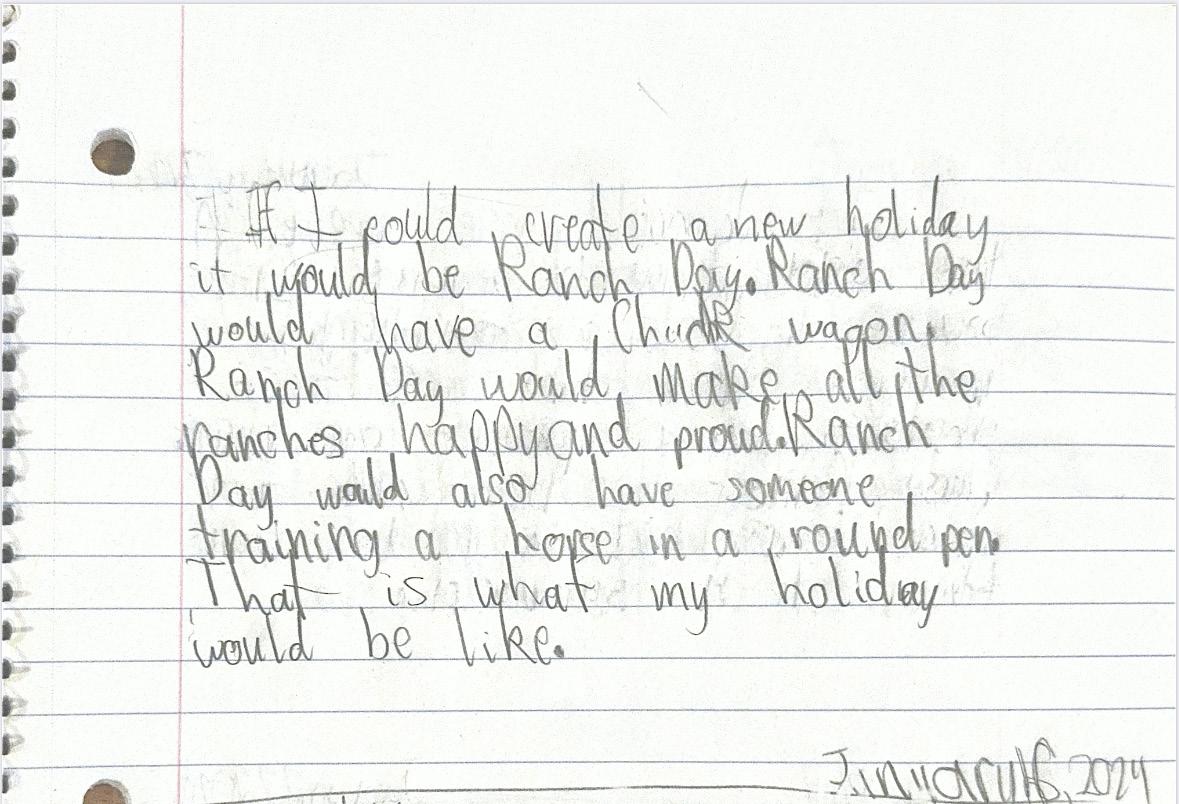 If I could create a new holiday
it would be Ranch Day. Ranch Day
would have a Chuck wagon.
Ranch Day would make all the
ranches happy and proud. Ranch
Day would also have someone
training a horse in a round pen.
That is what my holiday
would be like.
January 16, 2024